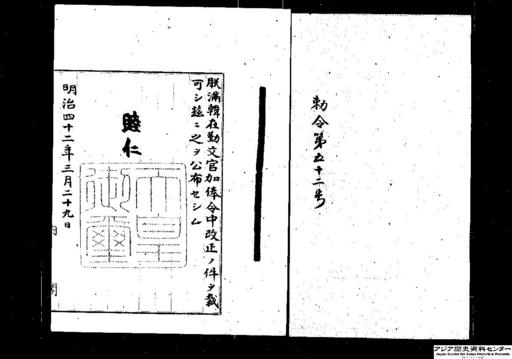 勅令第五十二号
朕満韓在勤文官加俸令中改正ノ件ヲ裁
可シ茲ニ之ヲ公布セシム
睦仁
天皇御璽
明治四十二年三月二十九日
内閣
アジア歴史資料センター
Japan Center for Asian Historical Records